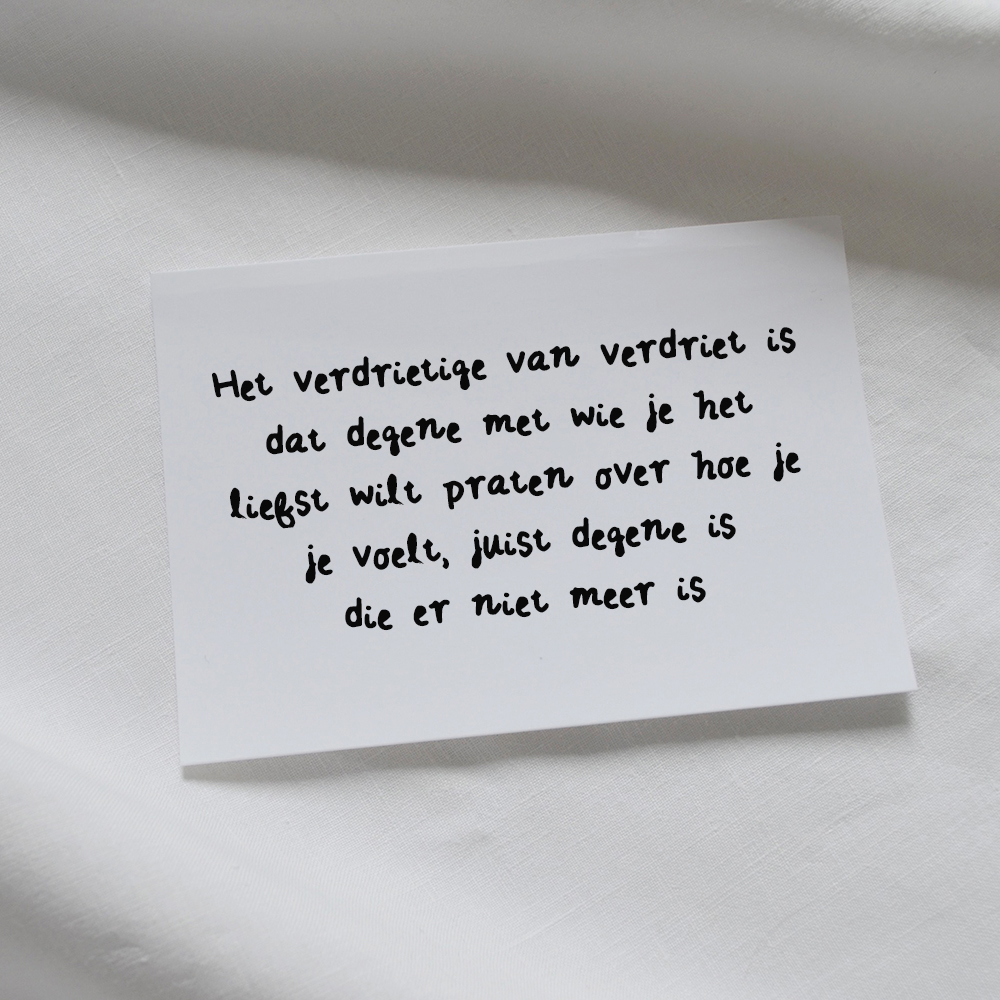 Het verdrietige van verdriet is
dat degene met wie je het
liefst wilt praten over hoe je
je voelt, juist degene is
die er niet meer is